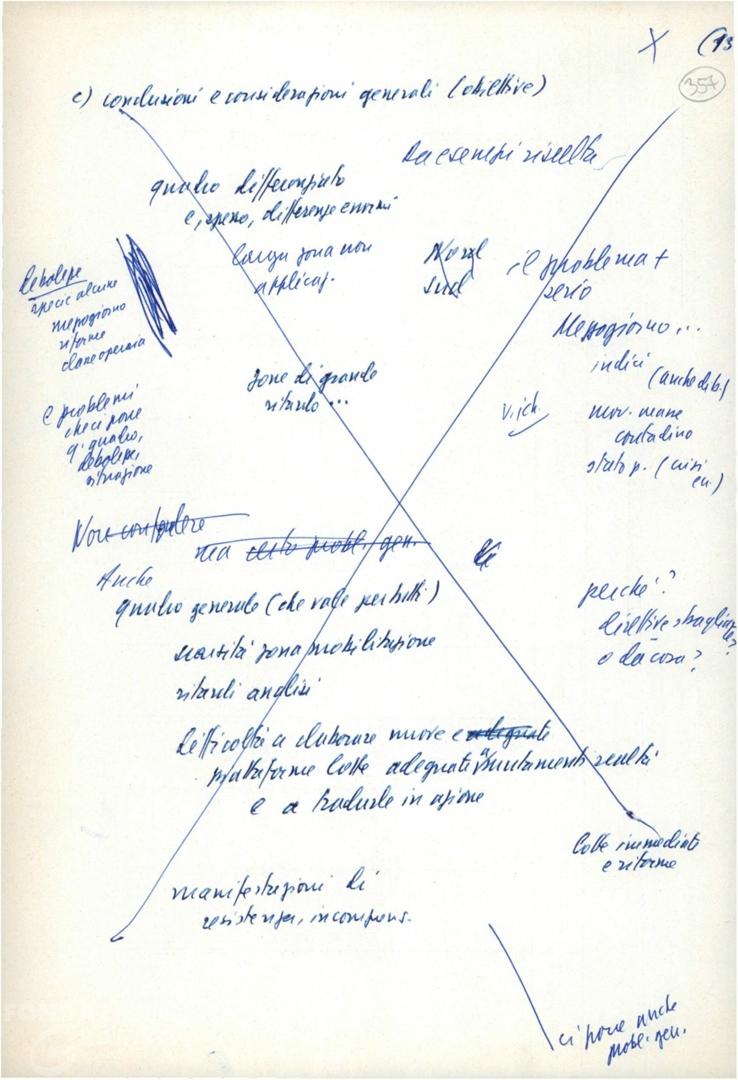 X (13
357
c) conclusioni e considerazioni generali (obiettive)
Da esempi risulta
quadro differenziato
e, spesso, differenze enormi
larga zona non
applicaz.
Nord
sud
il problema +
serio
Mezzogiorno...
indici
(anche dib.)
v. ich.
mov. masse
contadino
stato p. (crisi
debolezze
specie alcune
mezzogiorno
riforme
classe operaia
zone di grande
ritardo...
e problemi
che ci pone
q. quadro,
debolezze,
situazione
Non
ma certo probl. gen.
Anche
quadro generale (che vale per tutti)
scarsità zona mobilitazione
ritardi analisi
perché?
direttive sbagliate?
o da cosa?
difficoltà a elaborare nuove e adeguate
piattaforme lotte adeguate a mutamenti realtà
e a tradurle in azione
lotte immediate
e riforme
manifestazioni di
resistenza, incomprens.
ci pone anche
probl. gen.